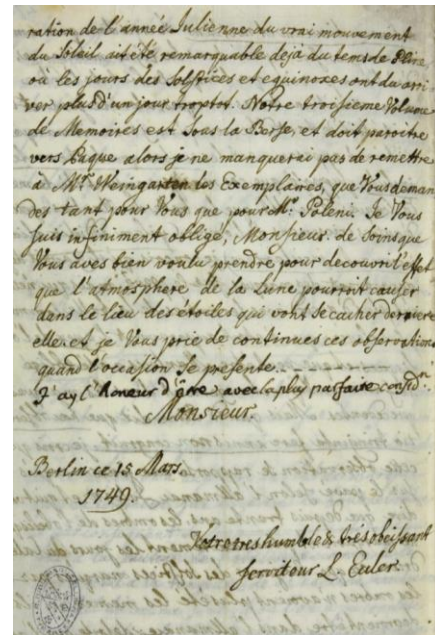 ration de l'année Julienne du vrai mouvement
du Soleil ait été remarquable deja du tems de Pline
où les jours des Solstices et equinoxes ont du arri
ver plus d'un jour trop tot. Notre troisieme Volume
de Memoires est sous la Presse, et doit paroitre
vers Paque alors je ne manquerai pas de remettre
à Mr. Weingarten les Exemplaires, que Vous deman
des tant pour Vous que pour Mr. Poleni. Je Vous
suis infiniment obligé, Monsieur. de soins que
Vous aves bien voulu prendre pour decouvrir l'effet
que l'atmosphere de la Lune pourrit causer
dans le lieu des étoiles qui vont se cacher derriere
elle. et je Vous prie de continues ces observations
quand l'occasion se presente.
J'ay l'honeur d'être avec la plus parfaite consid.n
Monsieur.
Berlin ce 15 Mars.
1749.
Votre tres humble & trés obeissant
serviteur L. Euler.